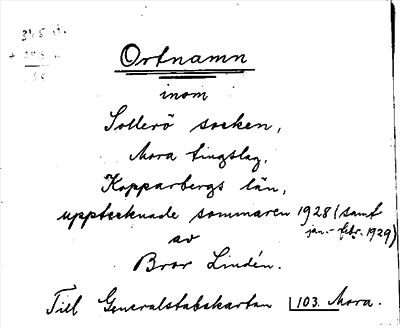 Ortnamn
inom
Sollerö socken,
Mora tingslag,
Kopparbergs län,
upptecknade sommaren 1928 (samt
jan.-febr. 1929)
av
Bror Lindén.
Till Generalstabskartan 103. Mora.